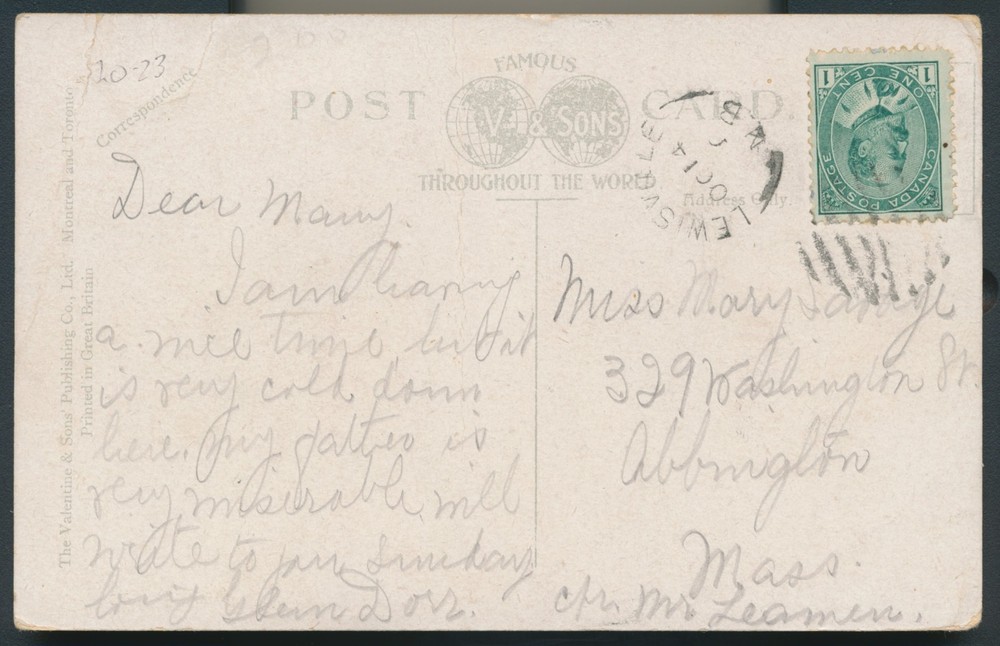 20-23
Correspondence
FAMOUS
POST CARD.
V. & SONS
THROUGHOUT THE WORLD.
Address Only.
The Valentine & Sons' Publishing Co., Ltd. Montreal and Toronto
Printed in Great Britain
LEWISVILLE
OC 14
N B
1 1
ONE CENT
CANADA POSTAGE
Dear Mary.
I am having
a nice time but it
is very cold down
here. my father is
very miserable will
write to you Sunday
Glenn Dorr.
Miss Mary Savage
329 Washington St.
Abbington
Mass.
c/o. Mr. Leamen.